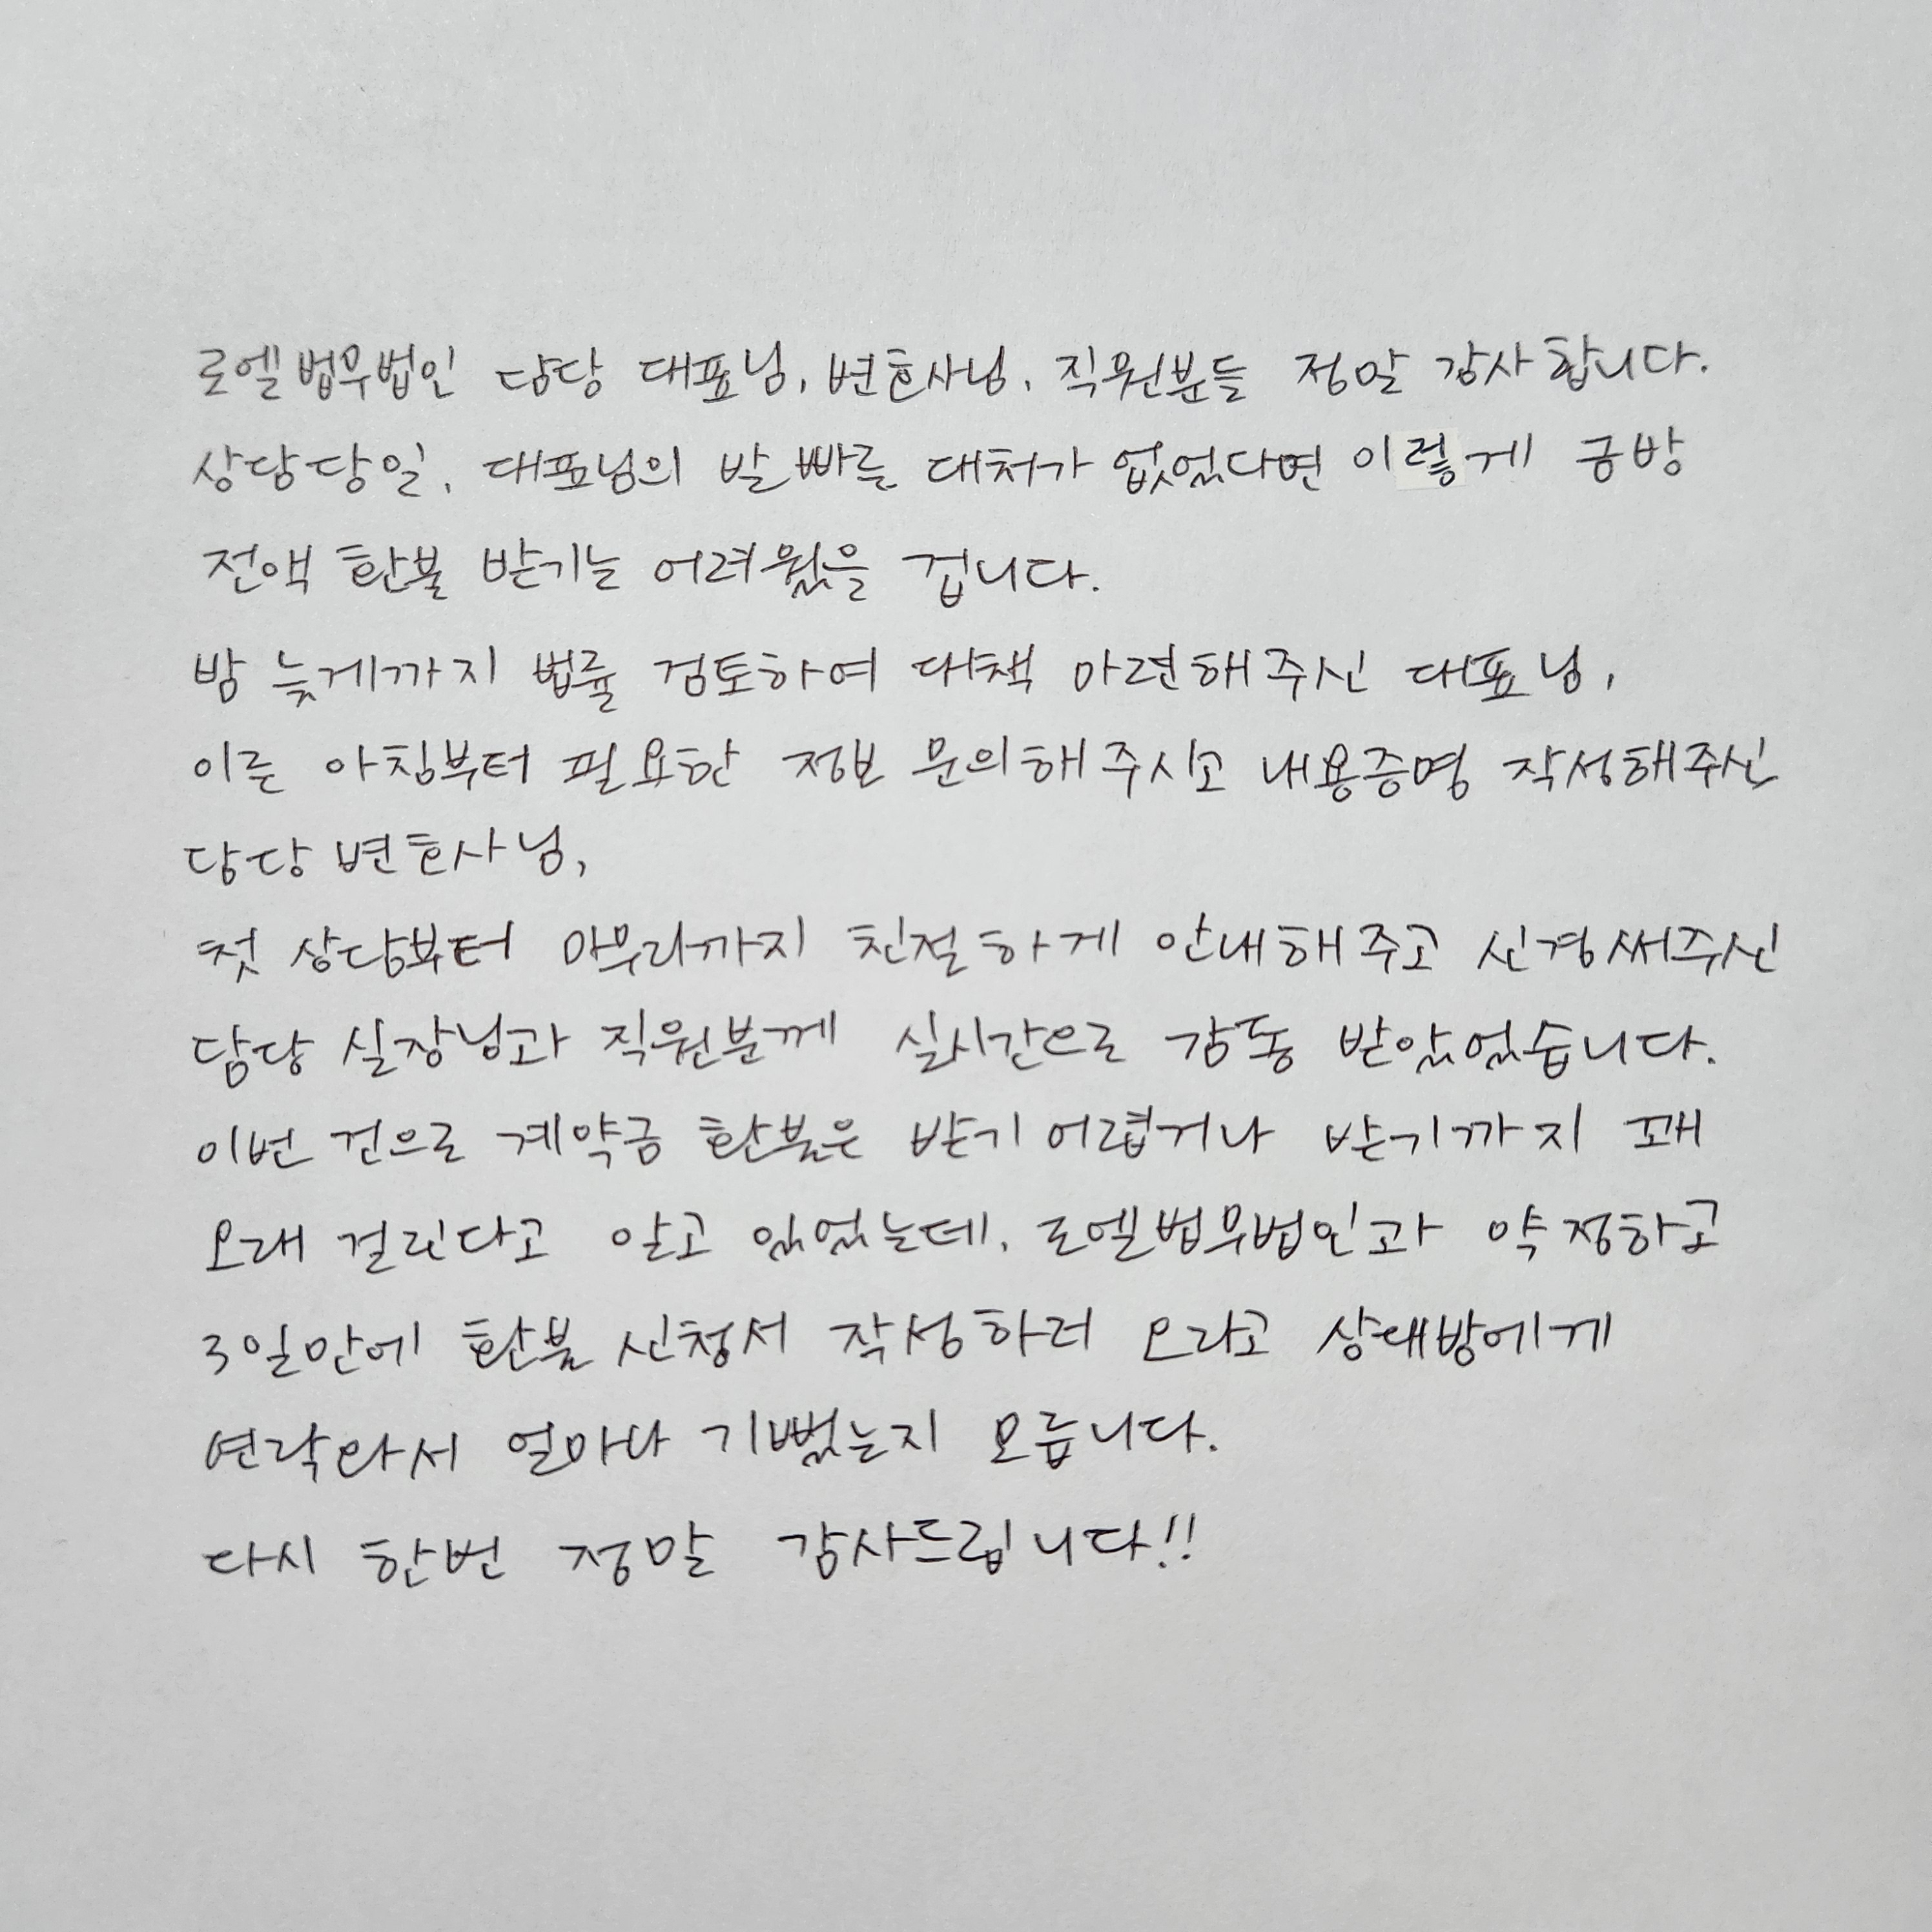 로엘법무법인 담당 대표님, 변호사님, 직원분들 정말 감사합니다.
상담당일, 대표님의 발 빠른 대처가 없었다면 이렇게 금방
전액 환불 받기는 어려웠을 겁니다.
밤 늦게까지 법률 검토하여 대책 마련해주신 대표님,
이른 아침부터 필요한 정보 문의해주시고 내용증명 작성해주신
담당 변호사님,
첫 상담부터 마무리까지 친절하게 안내해주고 신경써주신
담당 실장님과 직원분께 실시간으로 감동 받았었습니다.
이번 건으로 계약금 환불은 받기 어렵거나 받기까지 꽤
오래 걸린다고 알고 있었는데, 로엘법무법인과 약정하고
3일만에 환불 신청서 작성하러 오라고 상대방에게
연락와서 얼마나 기뻤는지 모릅니다.
다시 한번 정말 감사드립니다!!